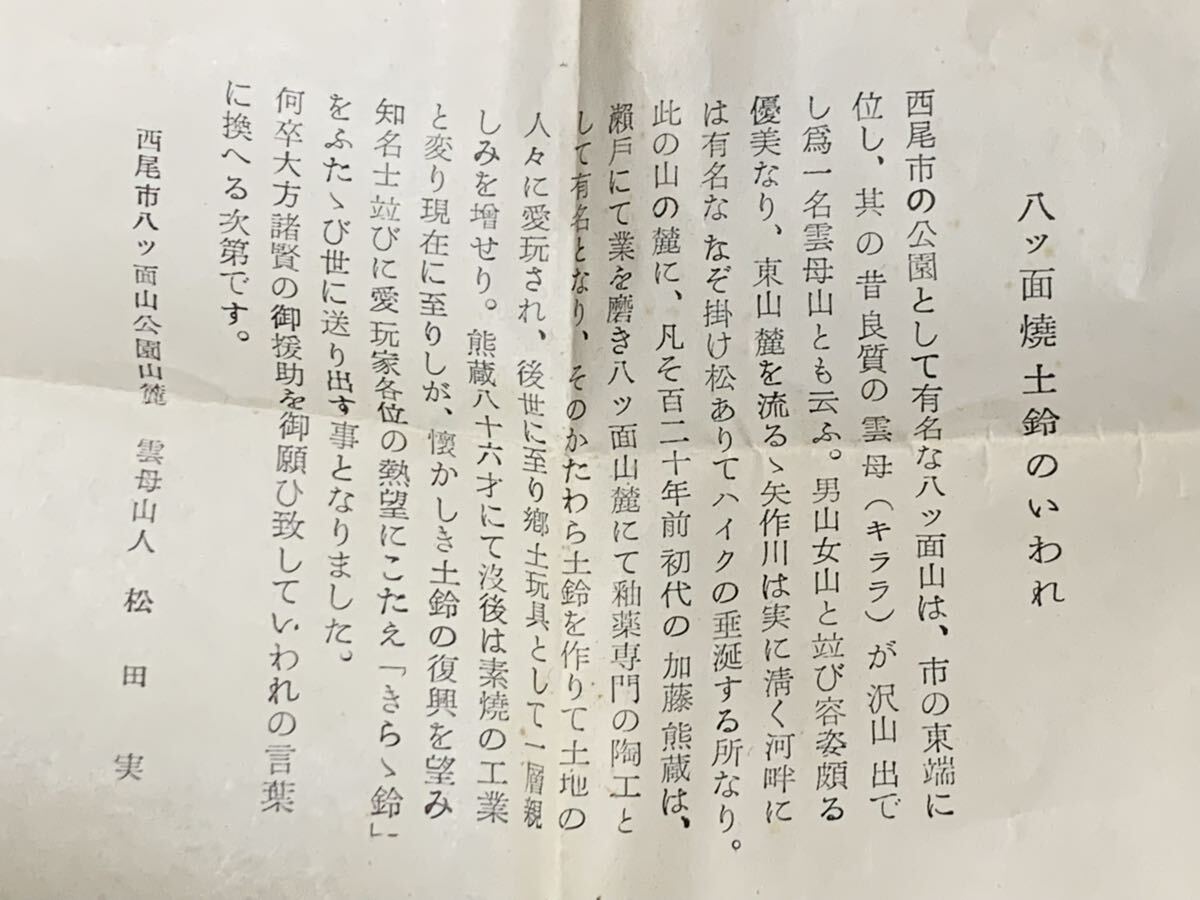 八ッ面燒土鈴のいわれ
西尾市の公園として有名な八ッ面山は、市の東端に
位し、其の昔良質の雲母(キララ)が沢山出で
し爲一名雲母山とも云ふ。男山女山と竝び容姿頗る
優美なり、東山麓を流るゝ矢作川は実に淸く河畔に
は有名ななぞ掛け松ありてハイクの垂涎する所なり。
此の山の麓に、凡そ百二十年前初代の加藤熊蔵は、
瀨戸にて業を磨き八ッ面山麓にて釉薬専門の陶工と
して有名となり、そのかたわら土鈴を作りて土地の
人々に愛玩され、後世に至り鄕土玩具として一層親
しみを增せり。熊蔵八十六才にて沒後は素燒の工業
と変り現在に至りしが、懷かしき土鈴の復興を望み
知名士竝びに愛玩家各位の熱望にこたえ「きらゝ鈴」
をふたゝび世に送り出す事となりました。
何卒大方諸賢の御援助を御願ひ致していわれの言葉
に換へる次第です。
西尾市八ッ面山公園山麓 雲母山人 松田実